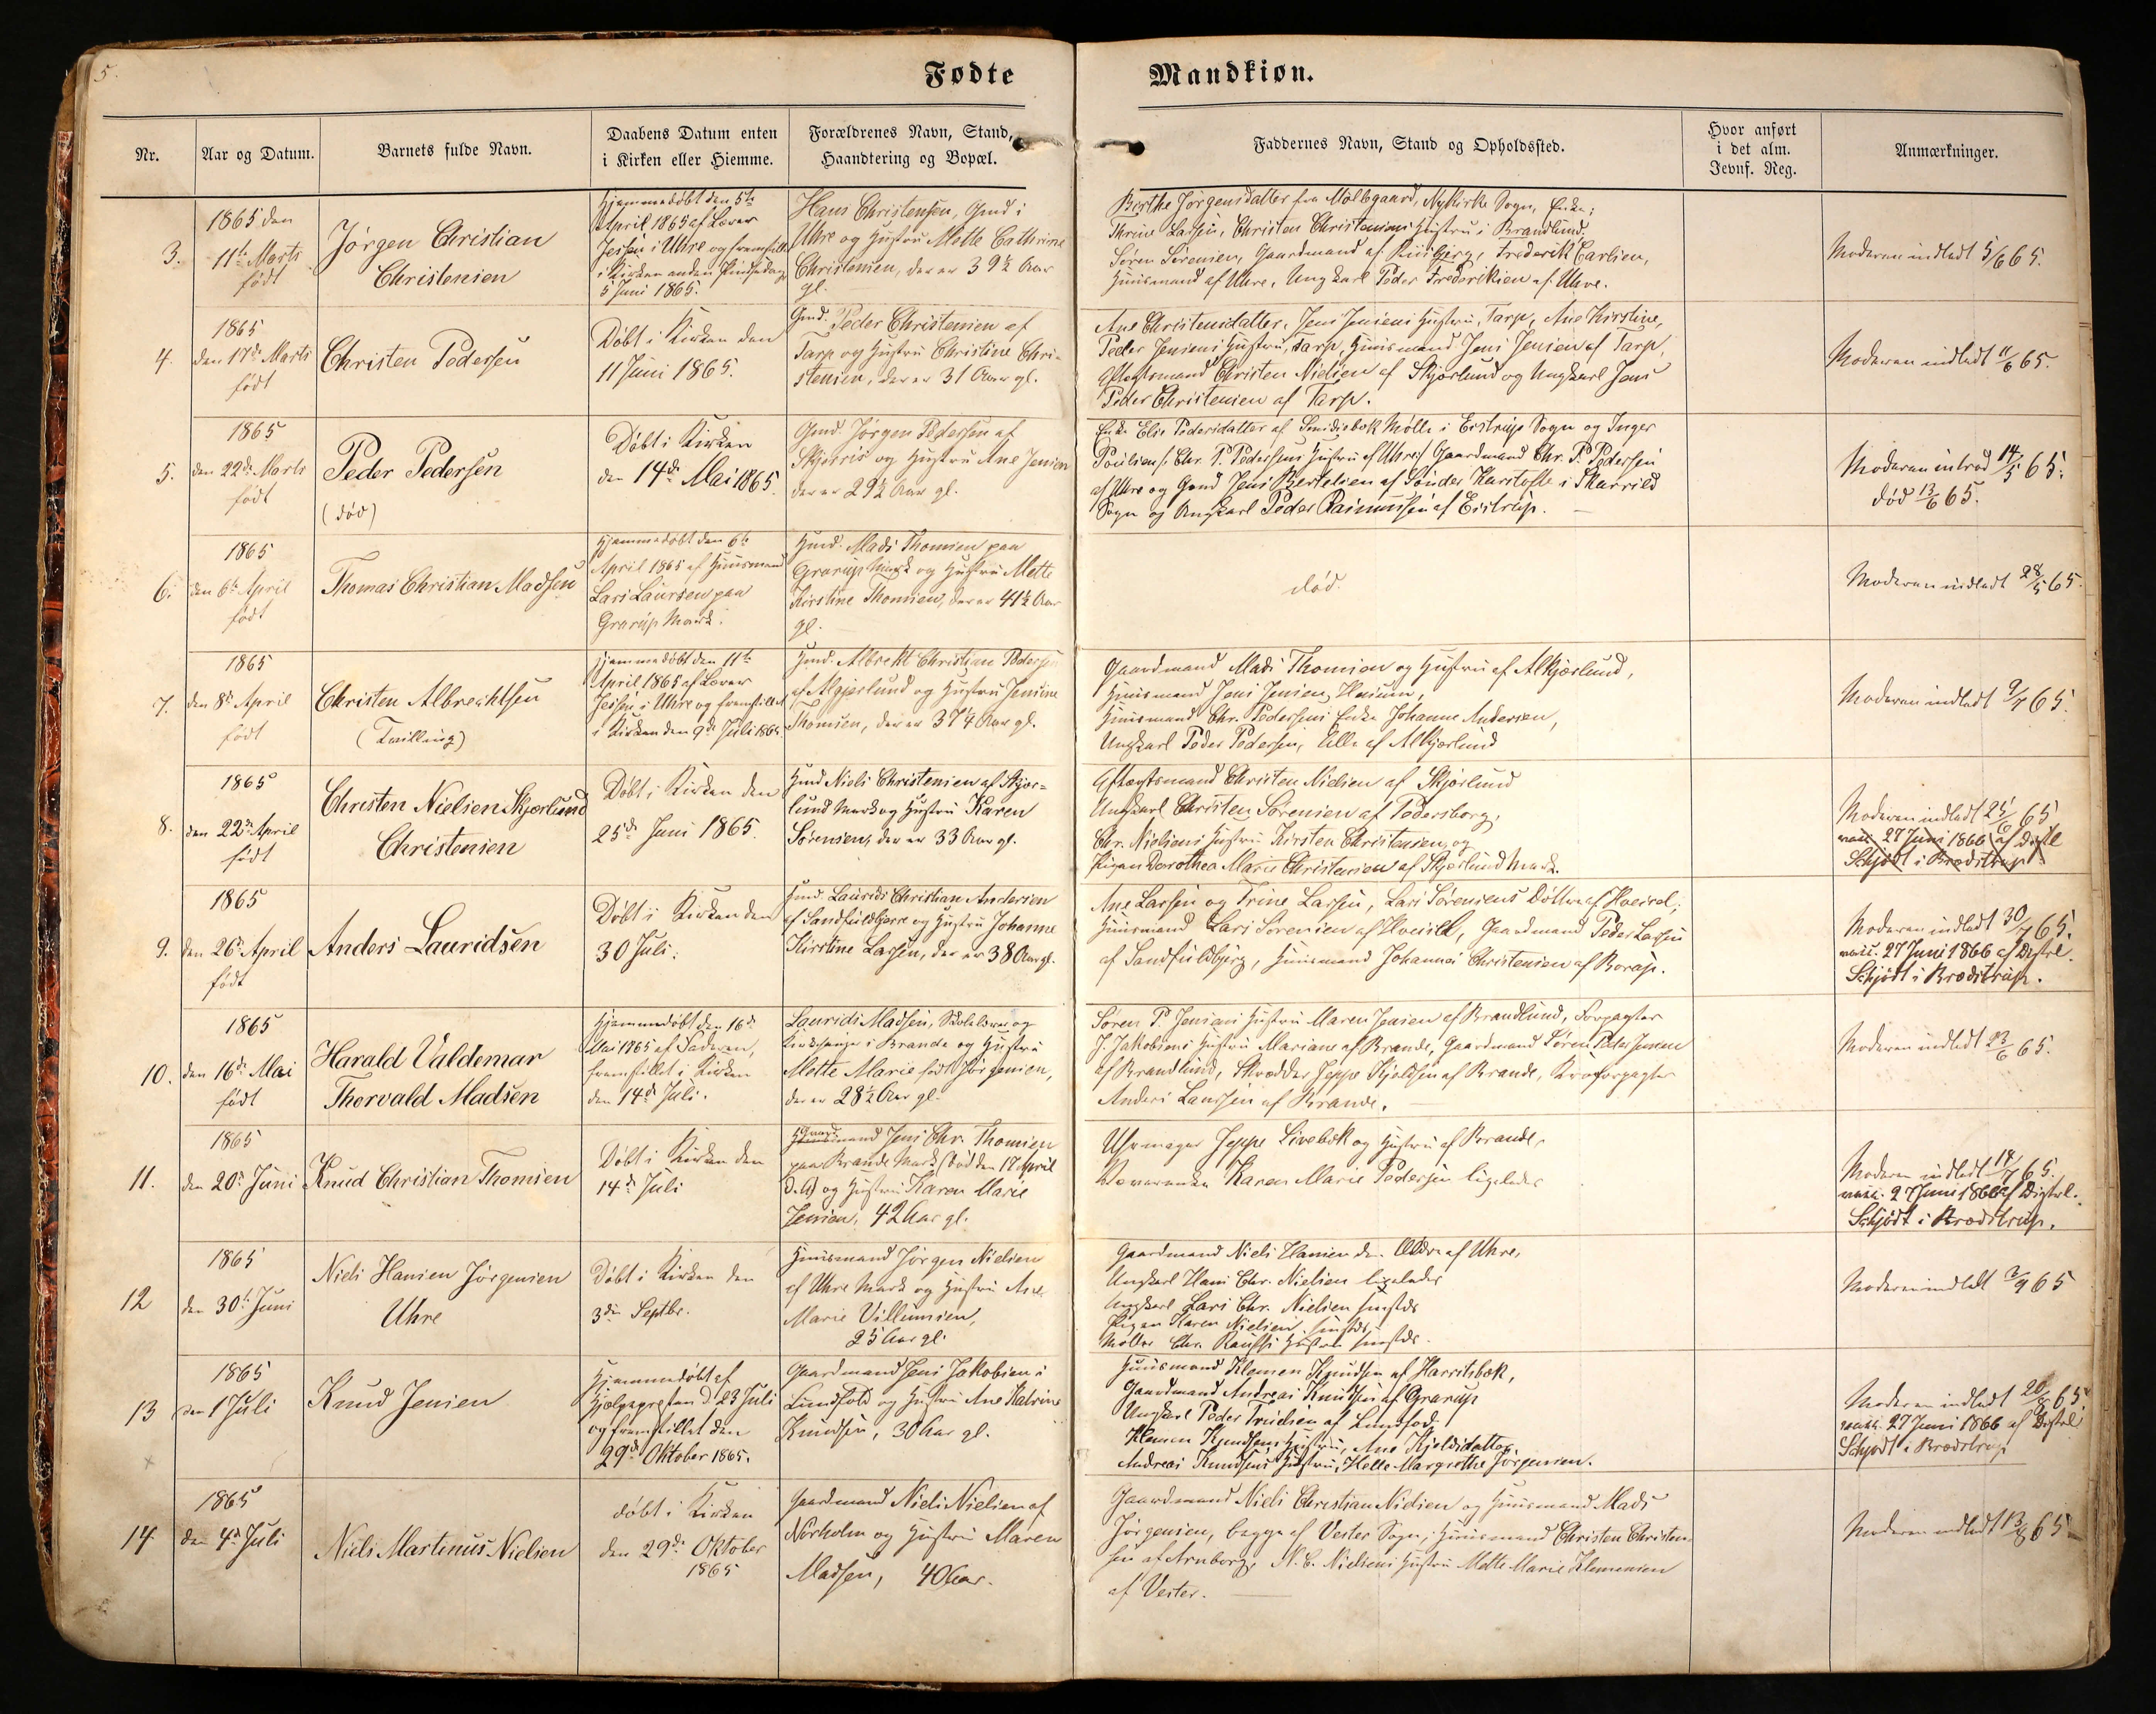 5.
Fødte
Mandkiøn.
Nr.
Aar og Datum.
Barnets fulde Navn.
Daabens Datum enten
i Kirken eller Hiemme.
Forældrenes Navn, Stand,
Haandtering og Bopæl.
Faddernes Navn, Stand og Opholdssted.
Hvor anført
i det alm.
Jevnf. Reg.
Anmærkninger.
3.
1865 den
11te Marts
født
Jørgen Christian
Christensen
Hjemmedøbt den 5te
April 1865 af Lærer
Jessen i Uhre og fremstillet
i Kirken anden Pindsedag
5 Juni 1865.
Hans Christensen, Gmd i
Uhre og Hustru Mette Cathrine
Christensen, der er 39½ Aar
gl.
Birthe Jørgensdatter fra Mølbgaard, Nykirke Sogn, Enke;
Thrine Larsen, Christen Christensens Hustru i Brandlund;
Søren Sørensen, Gaardmand af Riisbjerg, Frederik Carlsen,
Huusmand af Uhre, Ungkarl Peder Frederiksen af Uhre.
Moderen indledt 5/6 65.
4.
1865
den 17de Marts
født
Christen Pedersen
Døbt i Kirken den
11 Juni 1865.
Gmd. Peder Christensen af
Tarp og Hustru Christine Chri-
stensen, der er 31 Aar gl.
Ane Christensdatter, Jens Jensens Hustru, Tarp, Ane Kirstine,
Peder Jensens Hustru, Tarp, Huusmand Jens Jensen af Tarp,
Aftægtsmand Christen Nielsen af Skjærlund og Ungkarl Jens
Peder Christensen af Tarp.
Moderen indledt 11/6 65.
5.
1865
den 22de Marts
født
Peder Pedersen
(død)
Døbt i Kirken
den 14de Mai 1865.
Gmd. Jørgen Pedersen af
Skjerris og Hustru Ane Jensen
der er 29½ Aar gl.
Enke Else Pedersdatter af Smidsbæk Mølle i Eistrup Sogn og Inger
Poulsen (Chr. P. Pedersens Hustru af Uhre) Gaardmand Chr. P. Pedersen
af Uhre og Gmd Jens Bertelsen af Sønder Karstoft i Skarrild
Sogn og Ungkarl Peder Rasmussen af Eistrup.
Moderen introd 14/5 65.
død 13/6 65.
6.
1865
den 6te April
født
Thomas Christian Madsen
Hjemmedøbt den 6te
April 1865 af Huusmand
Lars Laursen paa
Grarup Mark.
Hmd. Mads Thomsen paa
Grarup Mark og Hustru Mette
Kirstine Thomsen, der er 41½ Aar
gl.
død.
Moderen indledt 28/5 65.
7.
1865
den 8de April
født
Christen Albrechtsen
(Tvilling)
Hjemmedøbt den 11te
April 1865 af Lærer
Jessen i Uhre og fremstillet
i Kirken den 9de Juli 1865.
Hmd. Albrekt Christian Pedersen
af Alkjærlund og Hustru Jensine
Thomsen, der er 37¼ Aar gl.
Gaardmand Mads Thomsen og Hustru af Alkjærlund,
Huusmand Jens Jensen,
Huusmand Chr. Pedersens Enke Johanne Andersen,
Ungkarl Peder Pedersen, Alle af Alkjærlund
Moderen indledt 9/7 65.
8.
1865
den 22de April
født
Christen Nielsen Skjærlund
Christensen
Døbt i Kirken den
25de Juni 1865.
Hmd Niels Christensen af Skjær-
lund Mark og Hustru Karen
Sørensen, der er 33 Aar gl.
Aftægtsmand Christen Nielsen af Skjærlund
Ungkarl Christen Sørensen af Pedersborg,
Chr. Nielsens Hustru Kirsten Christensen, og
Pigen Dorothea Marie Christensen af Skjærlund Mark.
Moderen indledt 25/6 65
vacc. 27 Juni 1866 af Distl
Schjødt i Brædstrup
9.
1865
den 26de April
født
Anders Lauridsen
Døbt i Kirken den
30 Juli.
Hmd. Laurids Christian Andersen
af Sandfeldbjerg og Hustru Johanne
Kirstine Larsen, der er 38 Aar gl.
Ane Larsen og Trine Larsen, Lars Sørensens Døttre af Hveisel;
Huusmand Lars Sørensen af Hveisel, Gaardmand Peder Larsen
af Sandfeldbjerg, Huusmand Johannes Christensen af Borup.
Moderen indledt 30/7 65.
vacc. 27 Juni 1866 af Distrl.
Schjødt i Brædstrup.
10.
1865
den 16de Mai
født
Harald Valdemar
Thorvald Madsen
Hjemmedøbt den 16de
Mai 1865 af Faderen,
fremstillet i Kirken
den 14de Juli.
Laurids Madsen, Skolelærer og
Kirkesanger i Brande og Hustru
Mette Marie født Jørgensen,
der er 28½ Aar gl.
Søren P. Jensens Hustru Maren Jensen af Brandlund, Forpagter
J. Jakobsens Hustru Mariane af Brande, Gaardmand Søren Peder Jensen
af Brandlund, Skrædder Jeppe Kjeldsen af Brande, Kroforpagter
Anders Laursen af Brande.
Moderen indledt 23/6 65.
11.
1865
den 20de Juni
Knud Christian Thomsen
Døbt i Kirken den
14de Juli
Gaardmand Jens Chr. Thomsen
paa Brande Mark (død den 17 April
d.A) og Hustru Karen Marie
Jensen, 42 Aar gl.
Uhrmager Jeppe Livebæk og Hustru af Brande,
Karen Marie Pedersen ligeledes
Moderen indledt 14/7 65.
vacc. 27 Juni 1866 af Distrl.
Schjødt i Brædstrup.
12
1865
den 30te Juni
Niels Hansen Jørgensen
Uhre
Døbt i Kirken den
3die Septbr.
Huusmand Jørgen Nielsen
af Uhre Mark og Hustru Ane
Marie Villumsen,
25 Aar gl.
Gaardmand Niels Hansen den Ældre af Uhre,
Ungkarl Hans Chr. Nielsen ligeledes
Ungkarl Lars Chr. Nielsen smstds
Pigen Karen Nielsen smstds
Møller Chr. Hustru smstds.
Moderen indledt 3/9 65
13
1865
den 1 Juli
Knud Jensen
Hjemmedøbt af
Hjælpepræsten d 23 Juli
og fremstillet den
29de Oktober 1865.
Gaardmand Jens Jakobsen i
Lundfod og Hustru Ane Katrine
Knudsen, 30 Aar gl.
Huusmand Klemen Knudsen af Harritsbæk,
Gaardmand Andreas Knudsen af Grarup
Ungkarl Peder Troelsen af Lundfod.
Klemen Knudsens Hustru, Ane Kjeldsdatter.
Andreas Knudsens Hustru, Helle Margrethe Jørgensen.
Moderen indledt 20/8 65.
vacc. 27 Juni 1866 af Distrl
Schjødt i Brædstrup
14
1865
den 4de Juli
Niels Martinus Nielsen
døbt i Kirken
den 29de Oktober
1865
Gaardmand Niels Nielsen af
Nørholm og Hustru Maren
Madsen, 40 Aar.
Gaardmand Niels Christian Nielsen og Huusmand Mads
Jørgensen, begge af Vester Sogn, Huusmand Christen Christen-
sen af Arnborg, N. C. Nielsens Hustru Mette Marie Klemensen
af Vester.
Moderen indledt 13/8 65